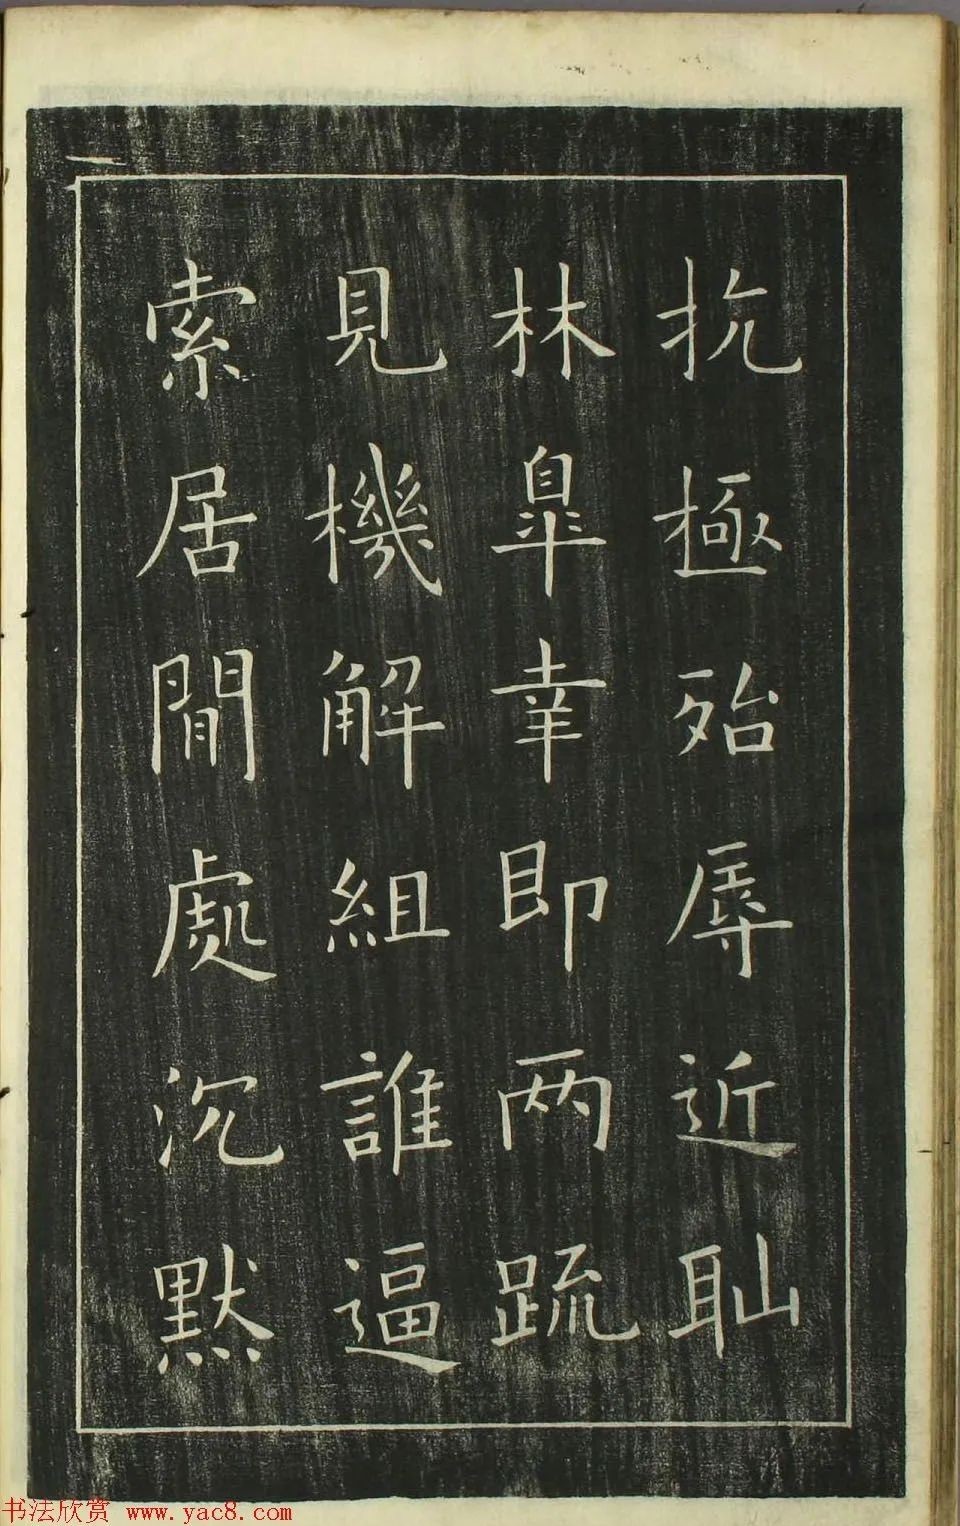 抗極殆辱近耻
林睾幸即两疏
見機解組誰逼
索居閒處沉默
书法欣赏 www.yac8.com